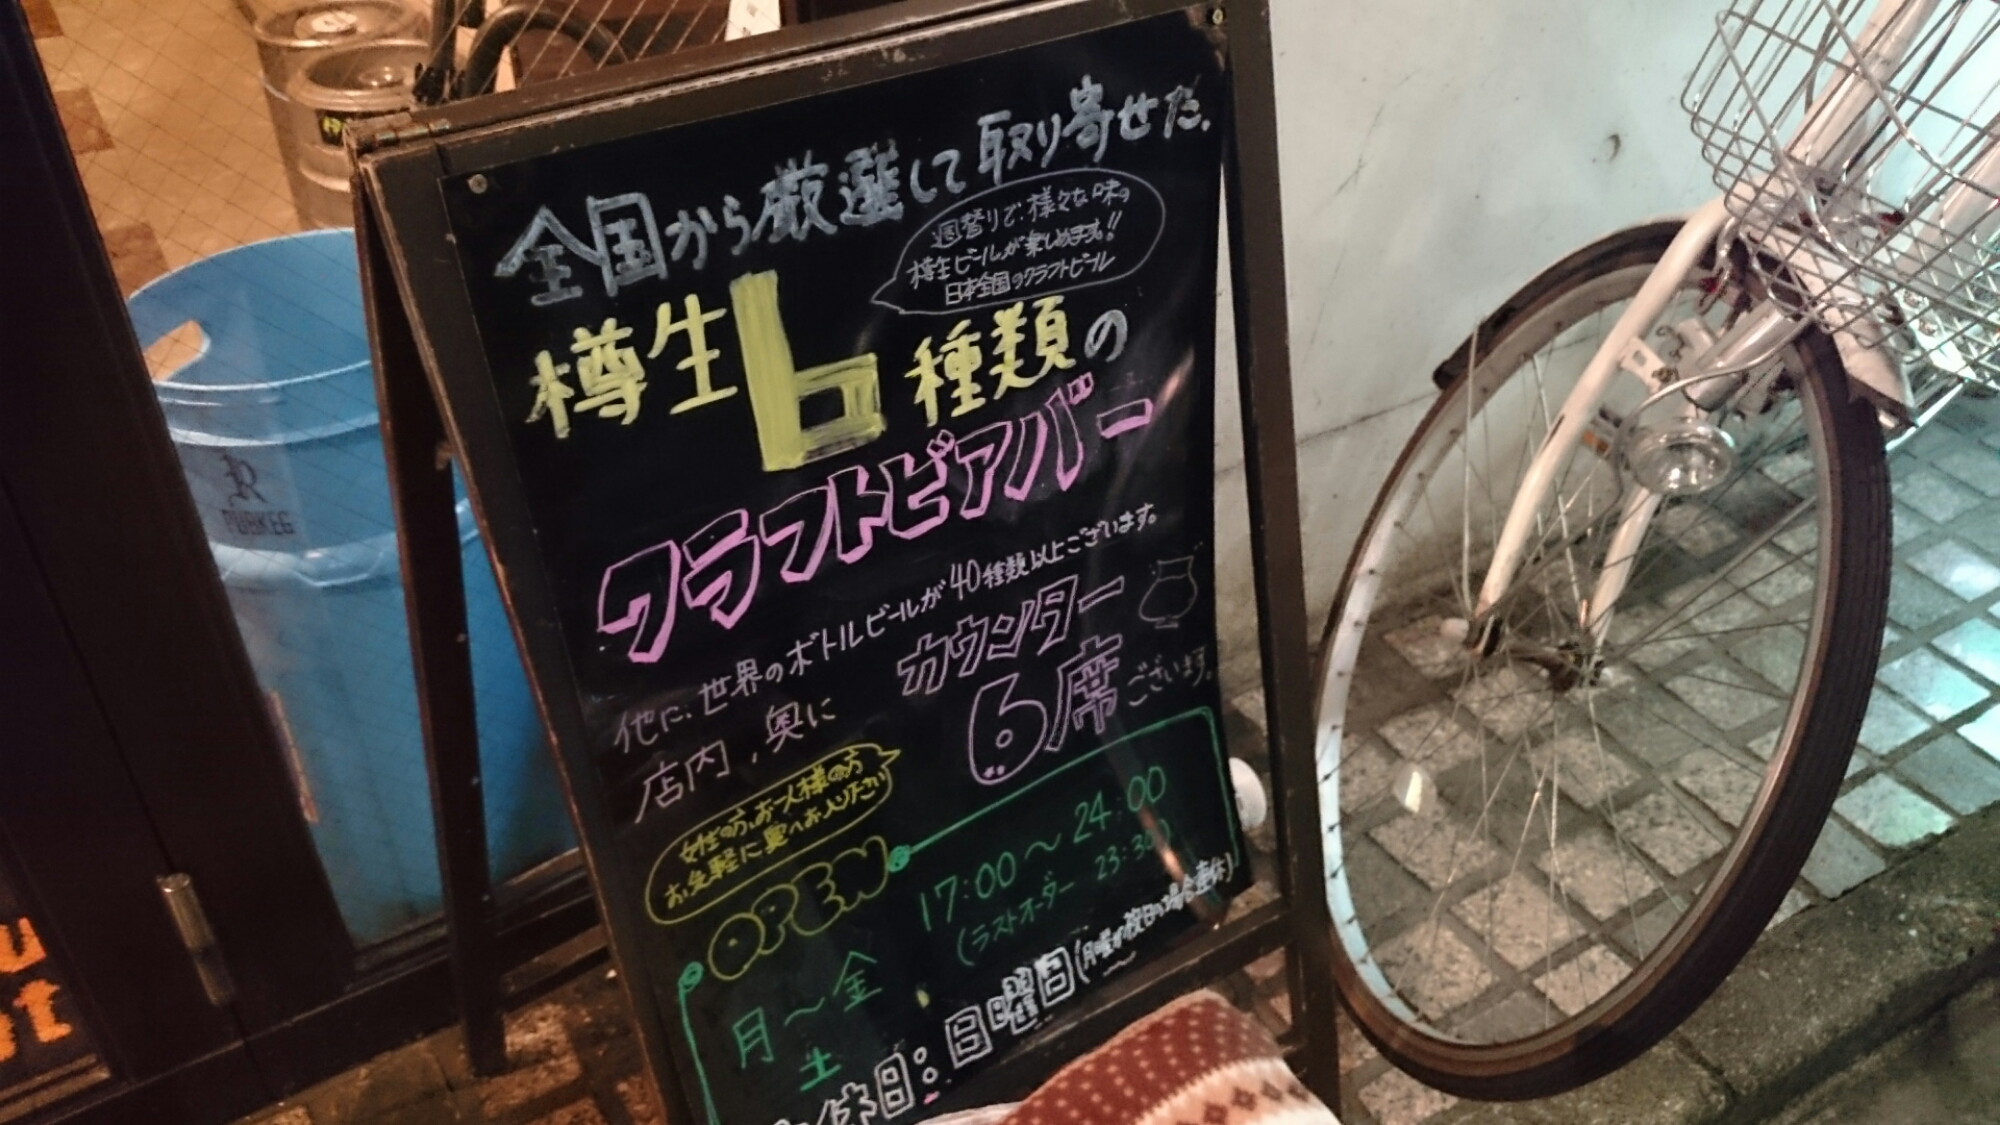 全国から厳選して取り寄せた、
週替りで、様々な味の
樽生ビールが楽しめます!!
日本全国のクラフトビール
樽生6種類の
クラフトビアバー
他に、世界のボトルビールが40種類以上ございます。
店内、奥に
カウンター
6席ございます。
女性の方、お一人様の方
お気軽に奥へお入り下さい
OPEN
17:00〜24:00
(ラストオーダー 23:30)
月〜金
土
休日:日曜日(月曜が祝日の場合連休)
PUBKEG